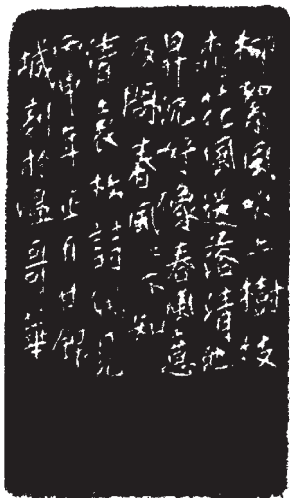 柳絮風吹上樹枝
桃花風送落清池
昇沉好像春風意
及問春風〻不知
清袁枚詩偶見
丙申年正月廿錦
城刻於溫哥華